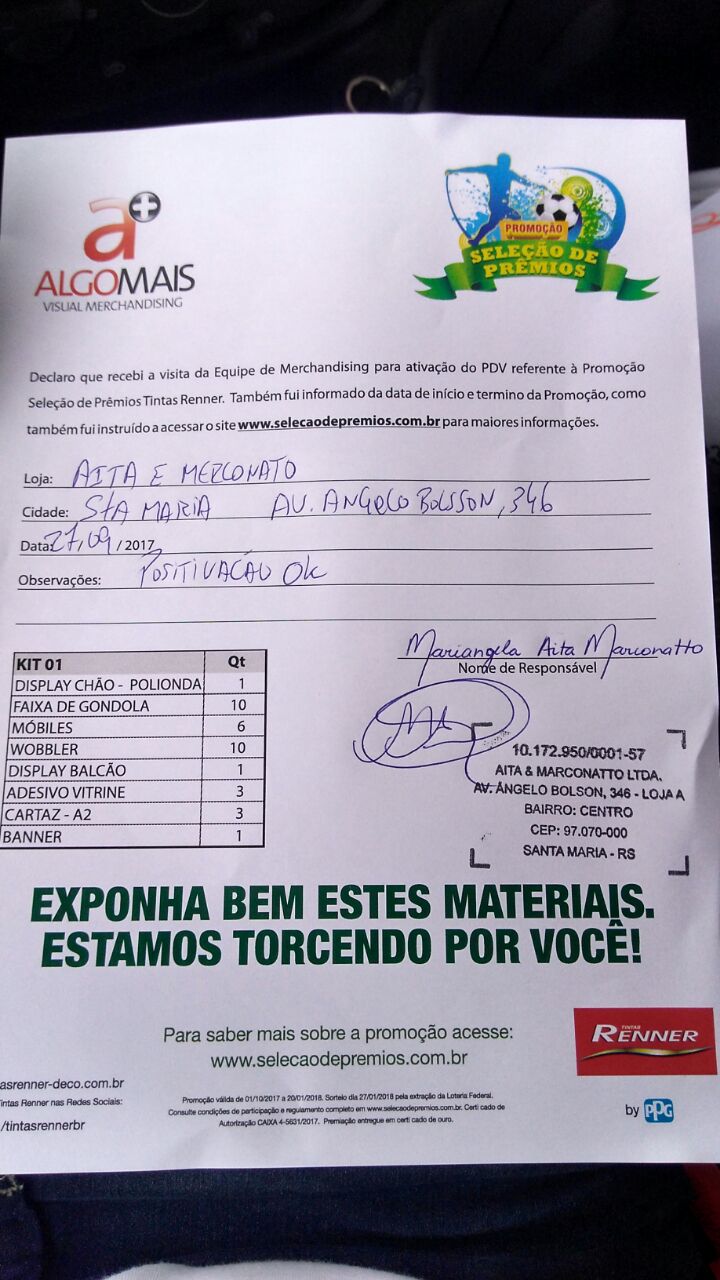 a+
ALGOMAIS
VISUAL MERCHANDISING
PROMOÇÃO
SELEÇÃO DE
PRÊMIOS
Declaro que recebi a visita da Equipe de Merchandising para ativação do PDV referente à Promoção
Seleção de Prêmios Tintas Renner. Também fui informado da data de início e termino da Promoção, como
também fui instruído a acessar o site www.selecaodepremios.com.br para maiores informações.
Loja: AITA E MERCONATO
Cidade: STA MARIA AV. ANGELO BOLSSON, 346
Data: 27/09/2017
Observações: POSITIVAÇÃO OK
Mariangela Aita Marconatto
Nome de Responsável
KIT 01 Qt
DISPLAY CHÃO - POLIONDA 1
FAIXA DE GONDOLA 10
MÓBILES 6
WOBBLER 10
DISPLAY BALCÃO 1
ADESIVO VITRINE 3
CARTAZ - A2 3
BANNER 1
10.172.950/0001-57
AITA & MARCONATTO LTDA.
AV. ÂNGELO BOLSON, 346 - LOJA A
BAIRRO: CENTRO
CEP: 97.070-000
SANTA MARIA - RS
EXPONHA BEM ESTES MATERIAIS.
ESTAMOS TORCENDO POR VOCÊ!
Para saber mais sobre a promoção acesse:
www.selecaodepremios.com.br
TINTAS
RENNER
by PPG
asrenner-deco.com.br
intas Renner nas Redes Sociais:
/tintasrennerbr
Promoção válida de 01/10/2017 a 20/01/2018. Sorteio dia 27/01/2018 pela extração da Loteria Federal.
Consulte condições de participação e regulamento completo em www.selecaodepremios.com.br. Certi cado de
Autorização CAIXA 4-5631/2017. Premiação entregue em certi cado de ouro.